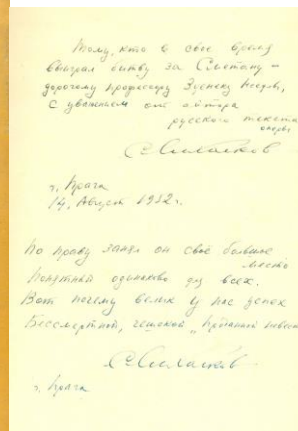 Тому, кто в свое время
выиграл битву за Сметану –
дорогому профессору Зденеку Неедлы,
с уважением от автора
русского текста
оперы
С. Михалков
г. Прага
14, Август 1952 г.
По праву занял он своё большое
место
Понятный одинаково для всех.
Вот почему велик у нас успех
Бессмертной, чешской „Проданной невесты
С. Михалков
г. Прага